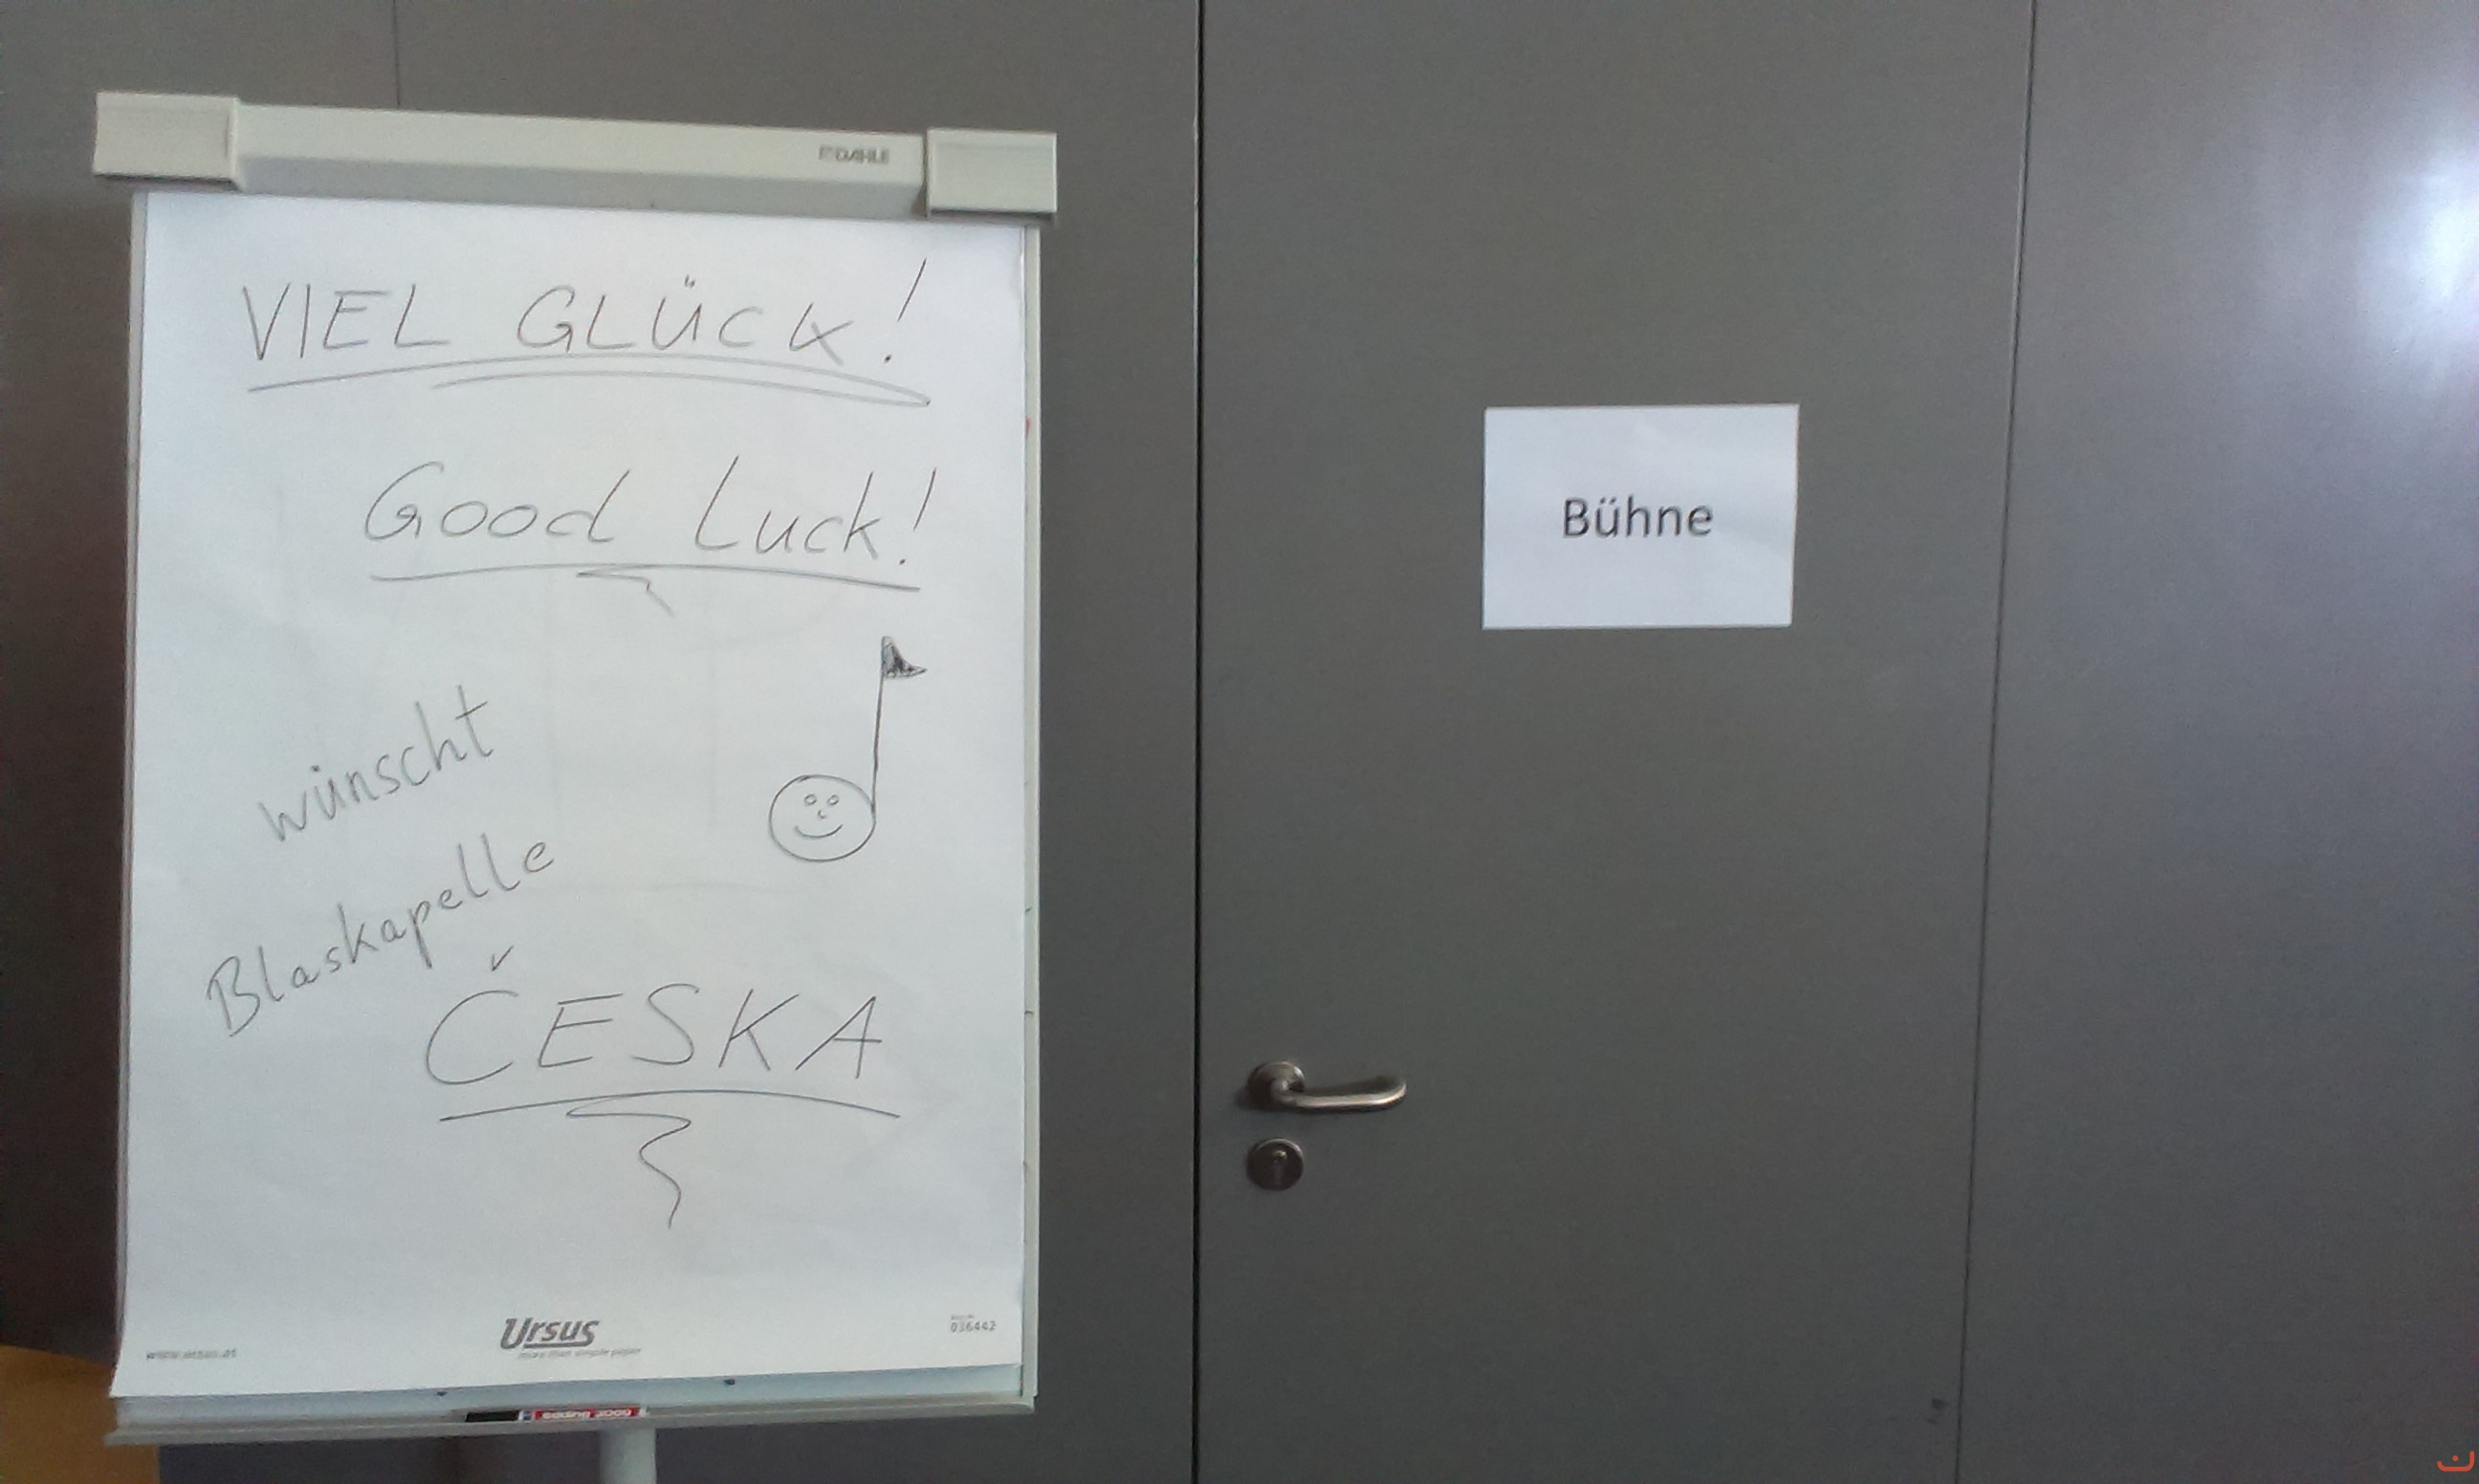 DAHLE
VIEL GLÜCK!
Good Luck!
wünscht
Blaskapelle
ČESKA
Ursus
more than simple paper
www.ursus.at
036442
edding 3000
Bühne